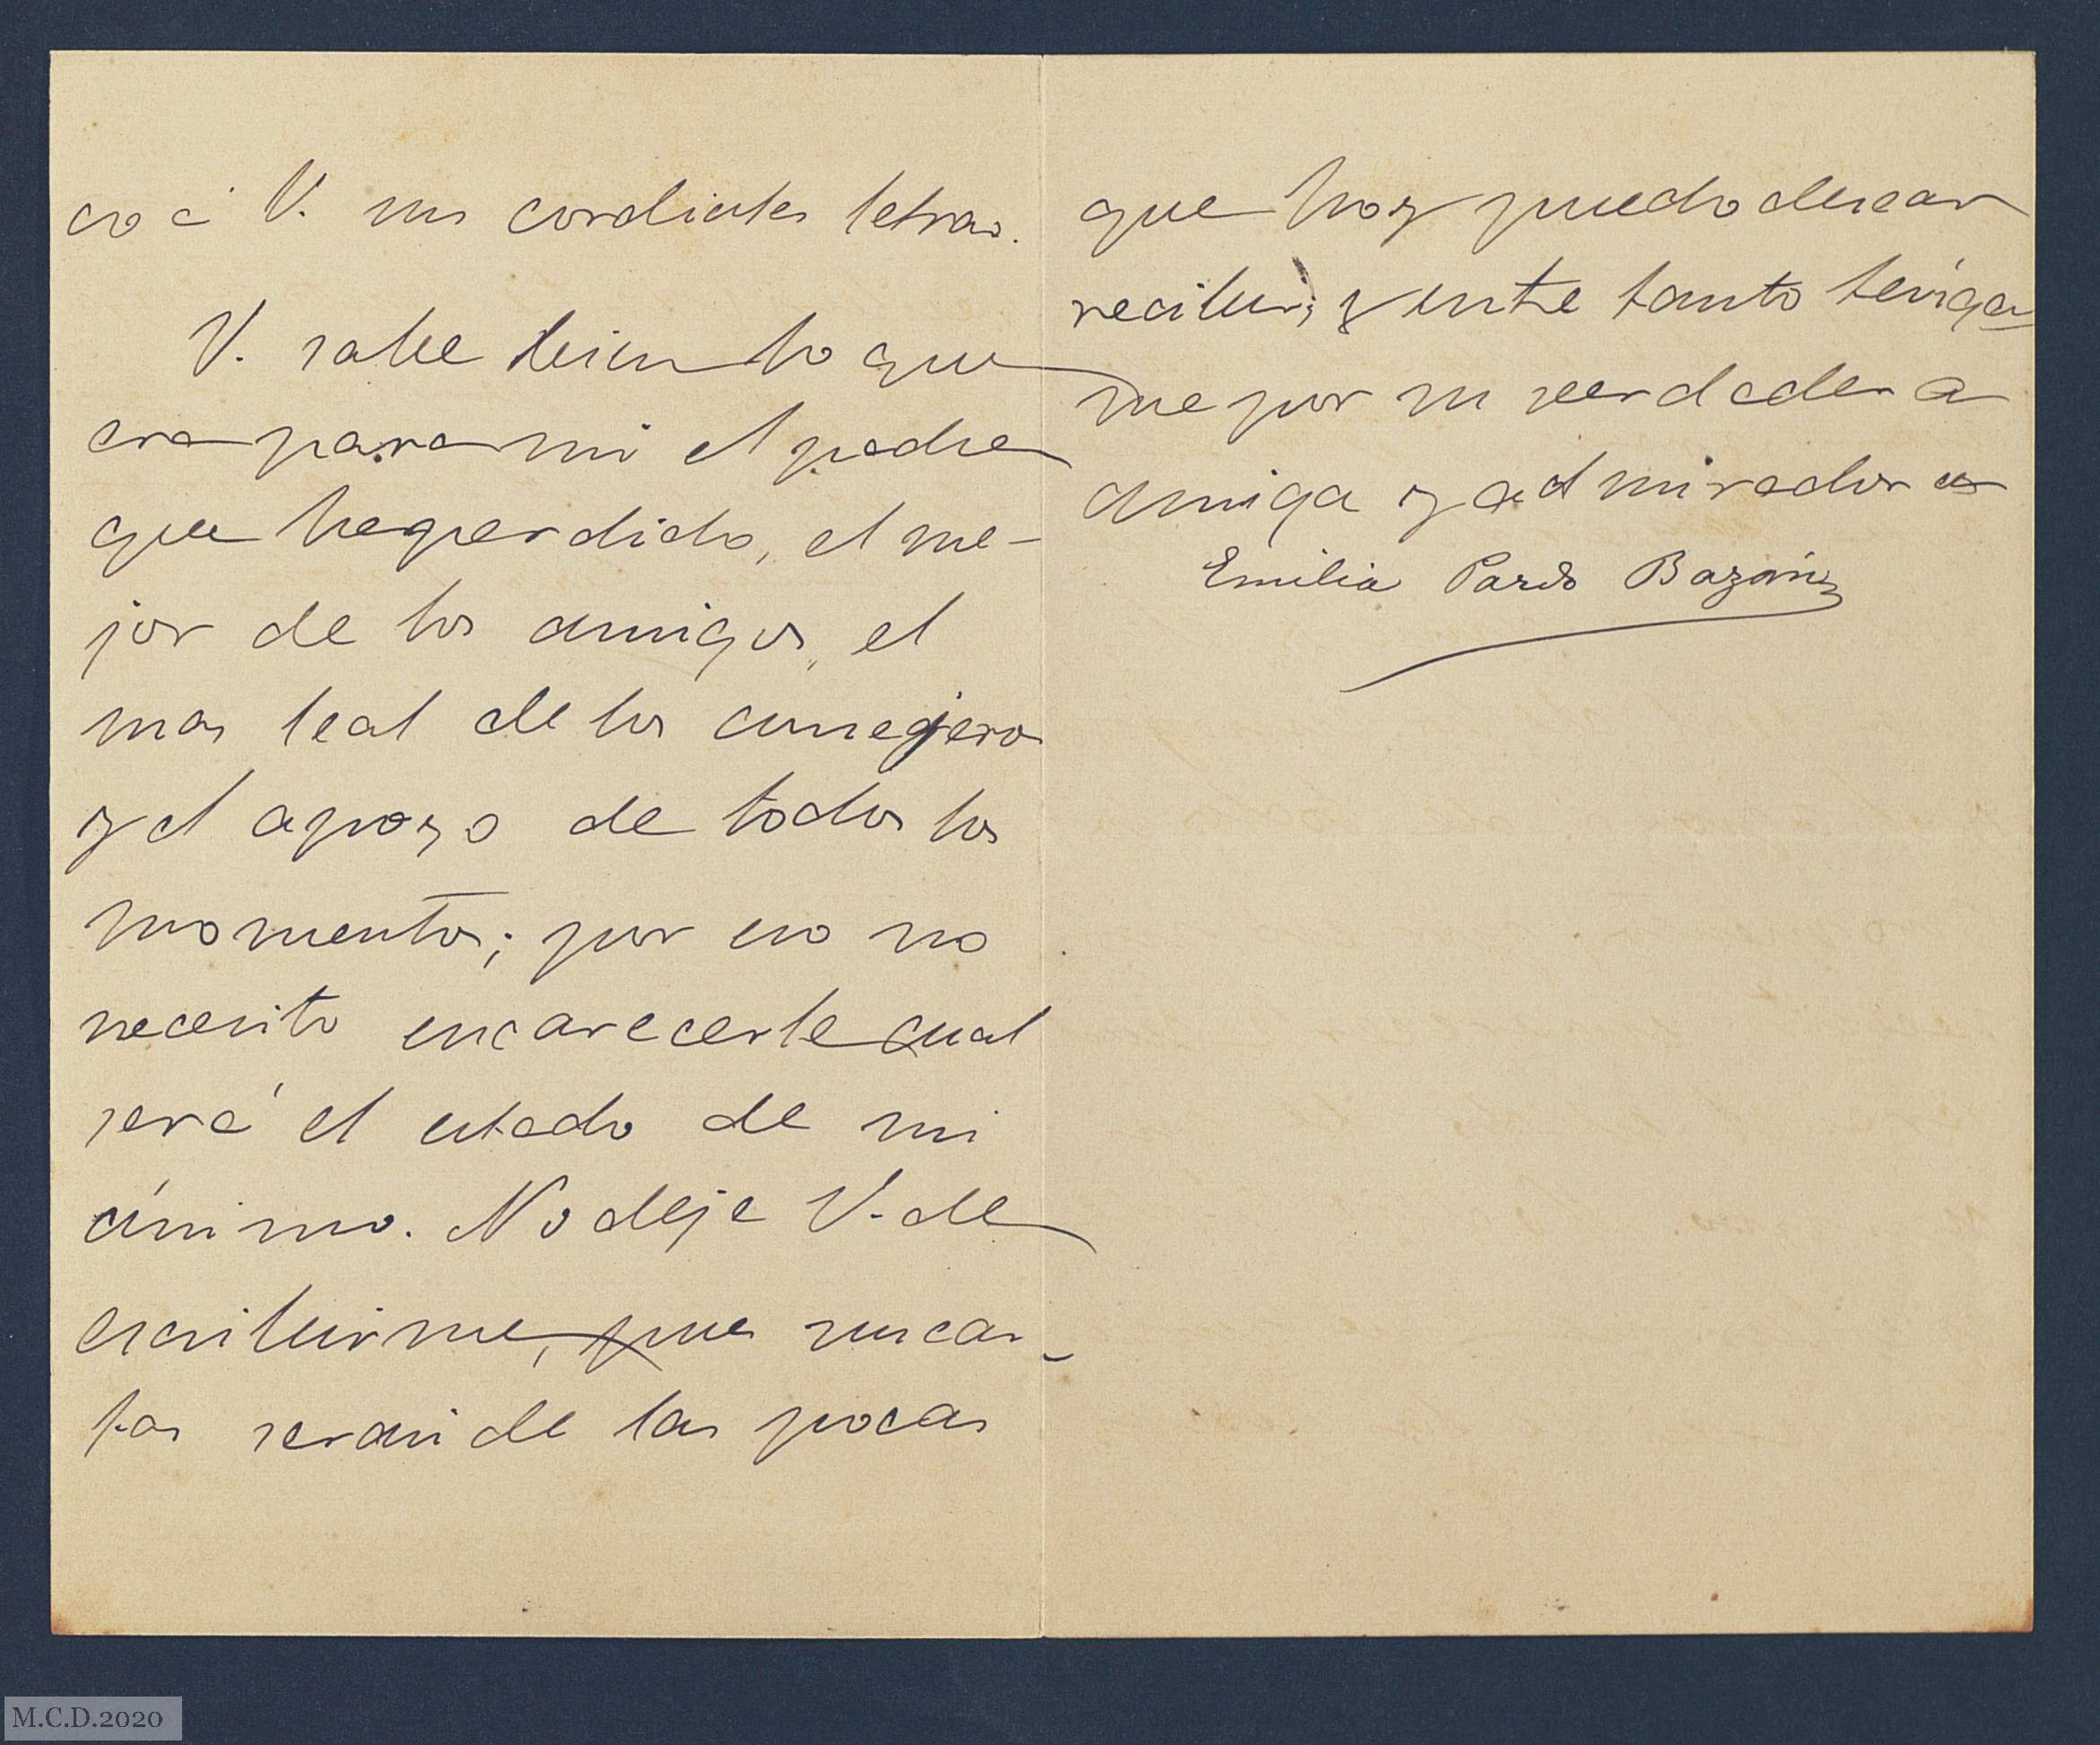 co á V. sus cordiales letras.
V. sabe bien lo que
era para mi el padre
que he perdido, el me-
jor de los amigos, el
mas leal de los consejeros
y el apoyo de todos los
momentos; por eso no
necesito encarecerle cual
será el estado de mi
ánimo. No deje V. de
escribirme, pues sus car-
tas serán de las pocas
que hoy puedo desear
recibir; y entre tanto téniga
me por su verdadera
amiga y admiradora
Emilia Pardo Bazán
M.C.D.2020